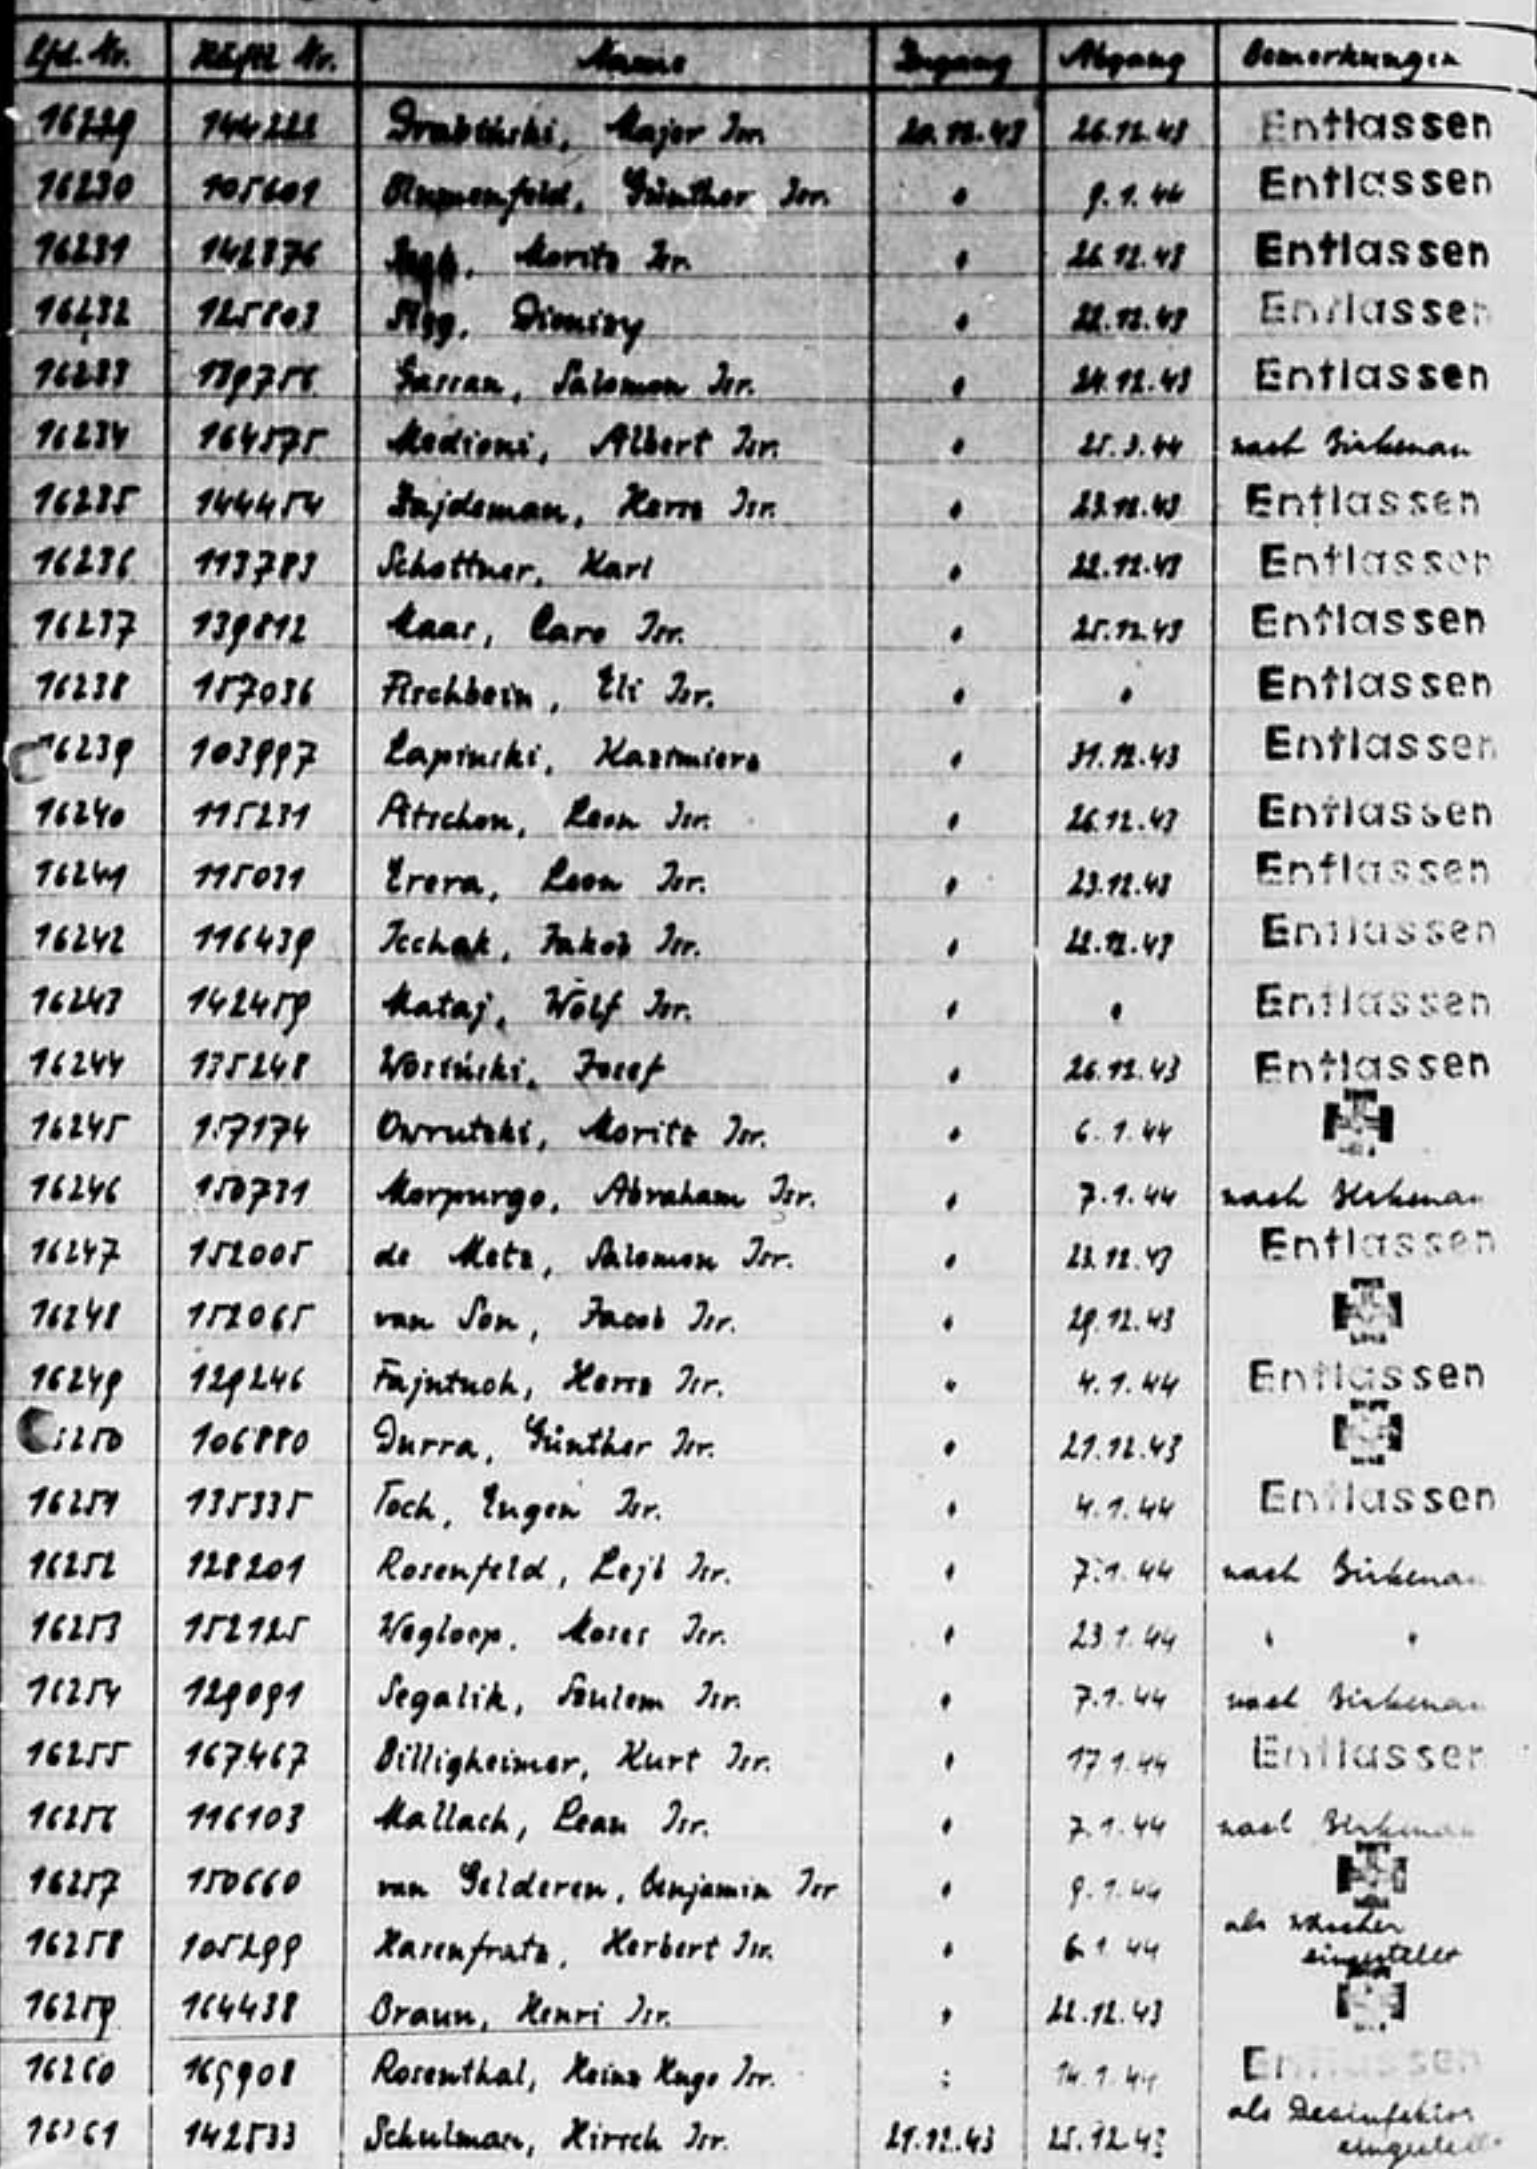 Lfd. Nr. Häftl. Nr. Name Zugang Abgang Bemerkungen
16229 144222 Drabinski, Major Isr. 20.12.43 26.12.43 Entlassen
16230 105601 Günther Isr. " 9.1.44 Entlassen
16231 142376 Moritz Isr. " 26.12.43 Entlassen
16232 125803 Dionizy " 22.12.43 Entlassen
16233 139756 Salomon Isr. " 24.12.43 Entlassen
16234 164575 Medioni, Albert Isr. " 25.3.44 nach Birkenau
16235 144454 Zajdeman, Hersz Isr. " 23.12.43 Entlassen
16236 113783 Schottner, Karl " 22.12.43 Entlassen
16237 139812 Maas, Caro Isr. " 25.12.43 Entlassen
16238 157036 Fischbein, Eli Isr. " " Entlassen
16239 103997 Lapinski, Kazimierz " 31.12.43 Entlassen
16240 115231 Atschon, Leon Isr. " 26.12.43 Entlassen
16241 115031 Erera, Leon Isr. " 23.12.43 Entlassen
16242 116439 Icchak, Jakob Isr. " 22.12.43 Entlassen
16243 142459 Mataj, Wolf Isr. " " Entlassen
16244 135248 Wosiński, Josef " 26.12.43 Entlassen
16245 157174 Owrutzki, Moritz Isr. " 6.1.44
16246 150731 Morpurgo, Abraham Isr. " 7.1.44 nach Birkenau
16247 152005 de Metz, Salomon Isr. " 23.12.43 Entlassen
16248 152065 van Son, Jacob Isr. " 29.12.43
16249 129246 Fajntuch, Hersz Isr. " 4.1.44 Entlassen
16250 106880 Durra, Günther Isr. " 21.12.43
16251 135335 Toch, Eugen Isr. " 4.1.44 Entlassen
16252 128201 Rosenfeld, Lejb Isr. " 7.1.44 nach Birkenau
16253 152125 Wegloop, Moses Isr. " 23.1.44 " "
16254 129091 Segalik, Szulem Isr. " 7.1.44 nach Birkenau
16255 167467 Billigheimer, Kurt Isr. " 17.1.44 Entlassen
16256 116103 Mallach, Lean Isr. " 7.1.44 nach Birkenau
16257 150660 van Gelderen, Benjamin Isr " 9.1.44
16258 105299 Hasenfratz, Herbert Isr. " 6.1.44 als Wäscher
eingestellt
16259 164438 Braun, Henri Isr. " 22.12.43
16260 165908 Rosenthal, Heinz Hugo Isr. " 14.1.44 Entlassen
16261 142533 Schulman, Hirsch Isr. 21.12.43 25.12.43 als Desinfektor
eingestellt